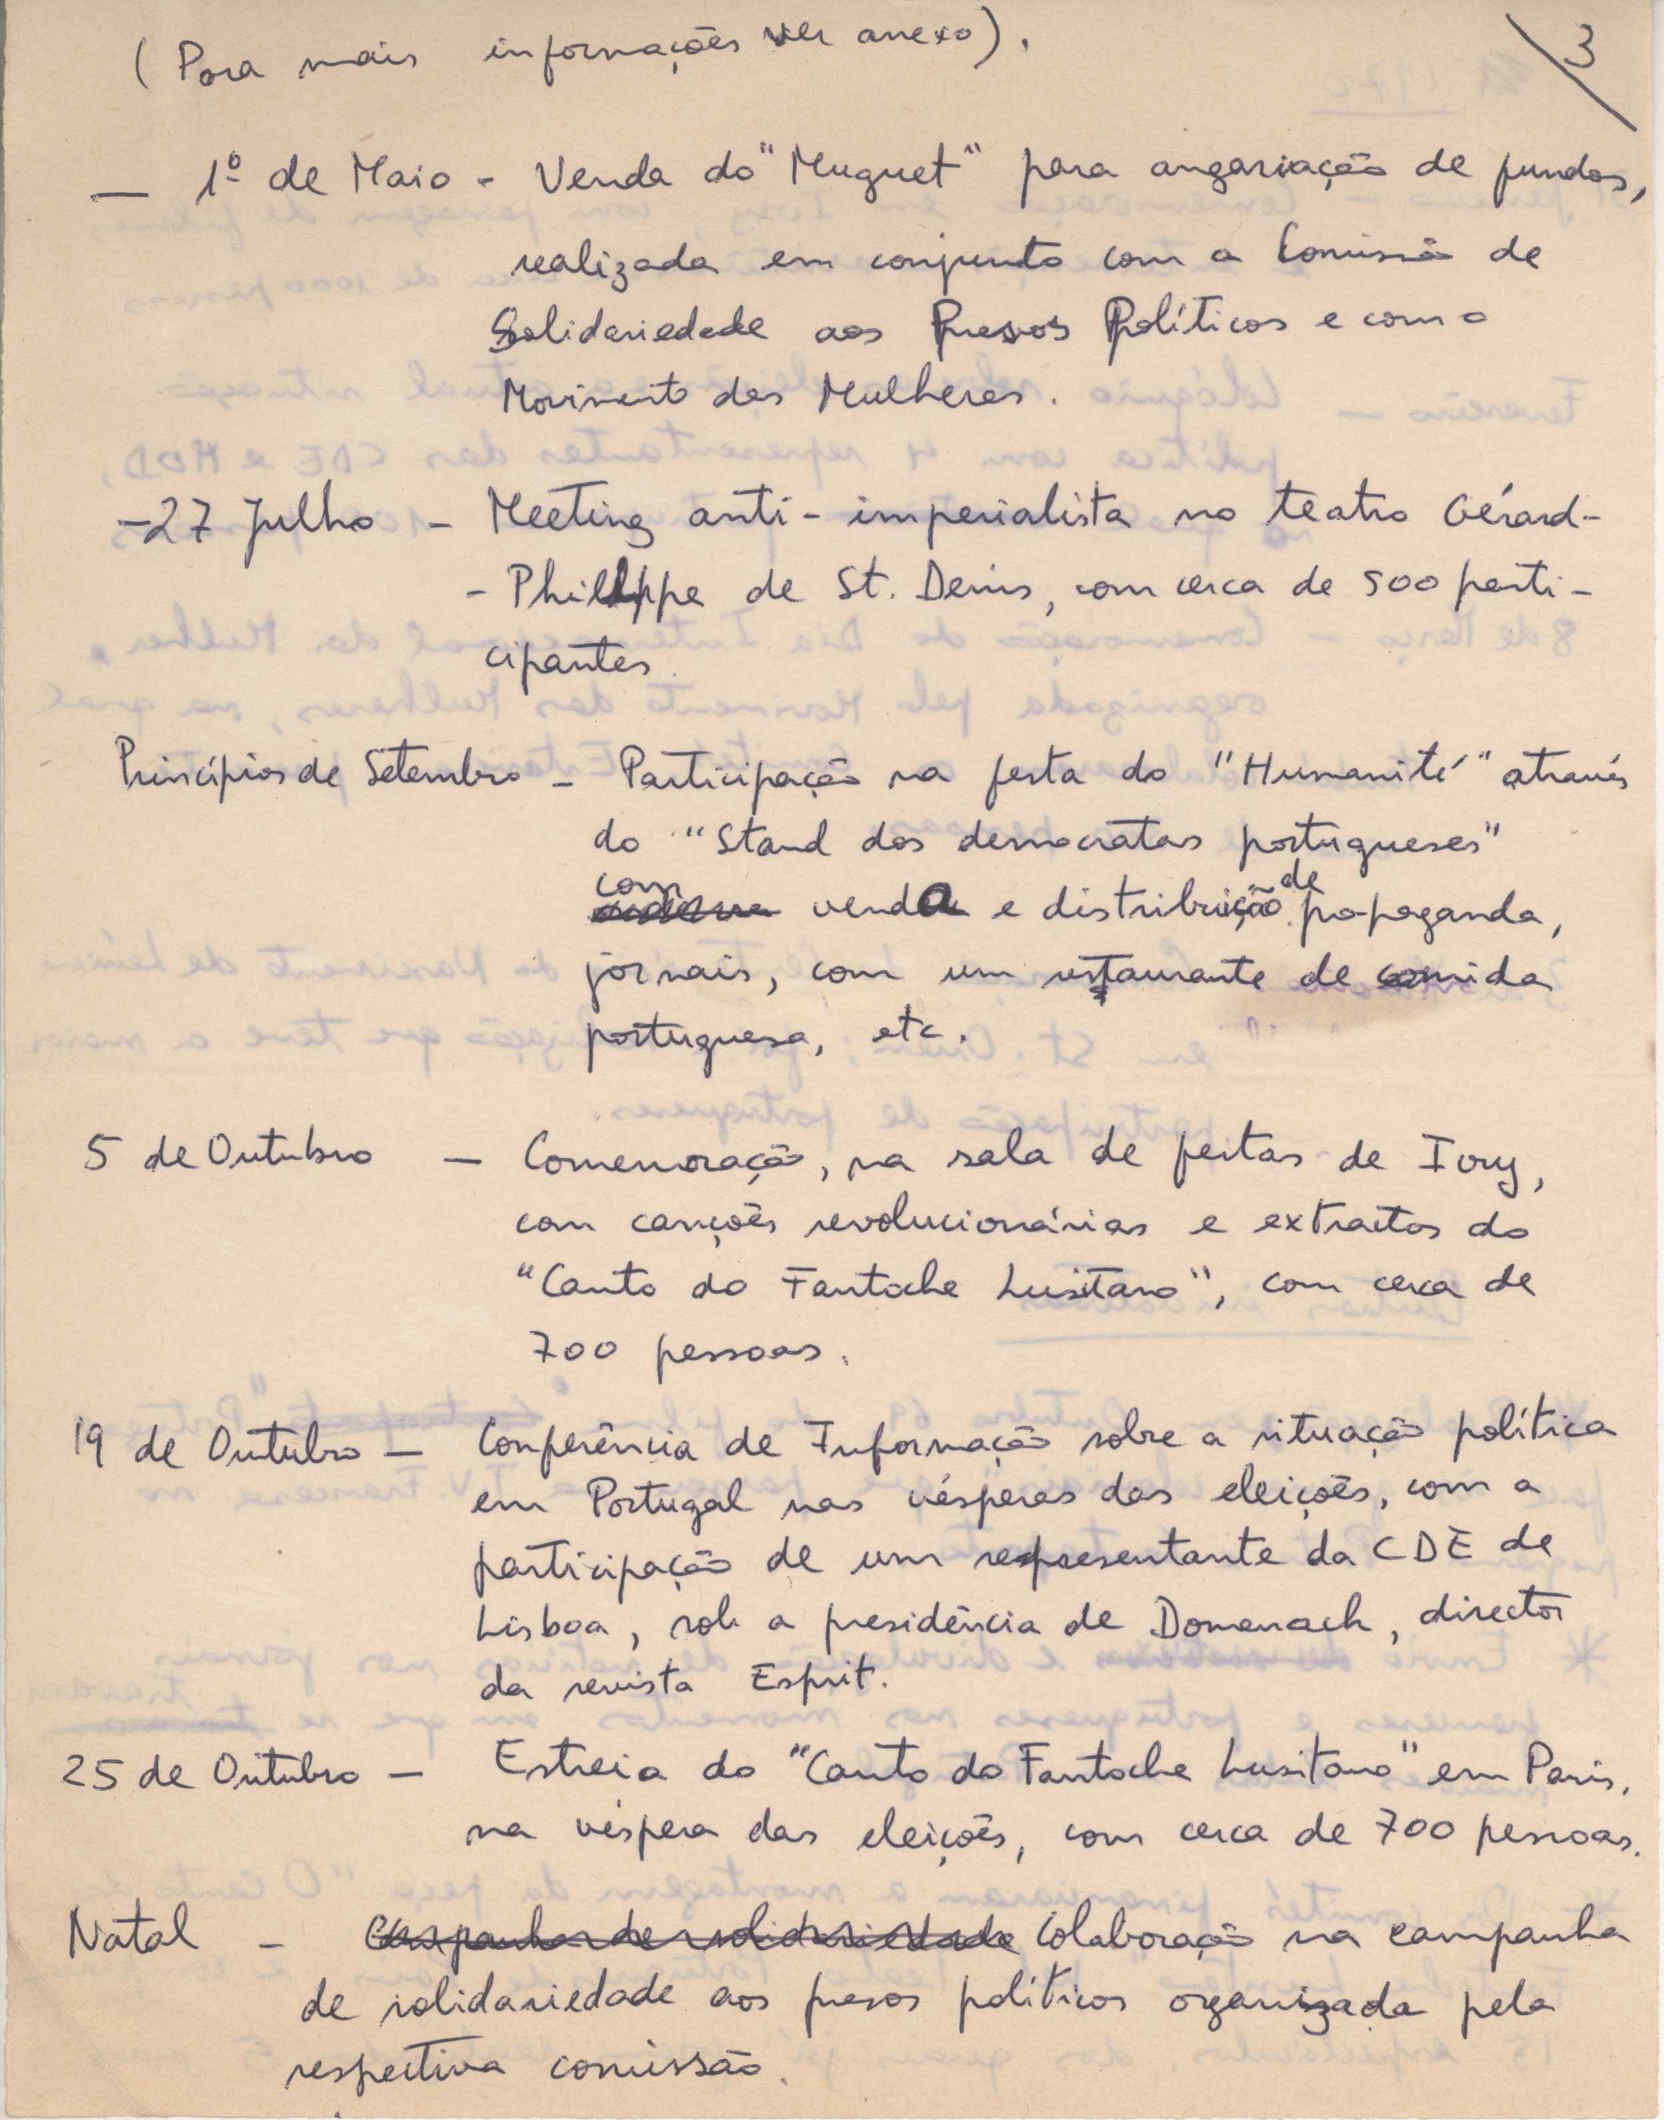 (Para mais informações ver anexo).
3
— 1º de Maio - Venda do "Muguet" para angariação de fundos,
realizada em conjunto com a Comissão de
Solidariedade aos Presos Políticos e com o
Movimento das Mulheres.
-27 Julho - Meeting anti-imperialista no teatro Gérard-
-Philippe de St. Denis, com cerca de 500 parti-
cipantes
Princípios de Setembro - Participação na festa do "Humanité" através
do "Stand dos democratas portugueses"
com venda e distribuição de propaganda,
jornais, com um restaurante de comida
portuguesa, etc.
5 de Outubro — Comemoração, na sala de festas de Ivry,
com canções revolucionárias e extractos do
"Canto do Fantoche Lusitano", com cerca de
700 pessoas.
19 de Outubro — Conferência de Informação sobre a situação política
em Portugal nas vésperas das eleições, com a
participação de um representante da CDE de
Lisboa, sob a presidência de Domenach, director
da revista Esprit.
25 de Outubro — Estreia do "Canto do Fantoche Lusitano" em Paris,
na véspera das eleições, com cerca de 700 pessoas.
Natal - Campanha de solidariedade Colaboração na campanha
de solidariedade aos presos políticos organizada pela
respectiva comissão.